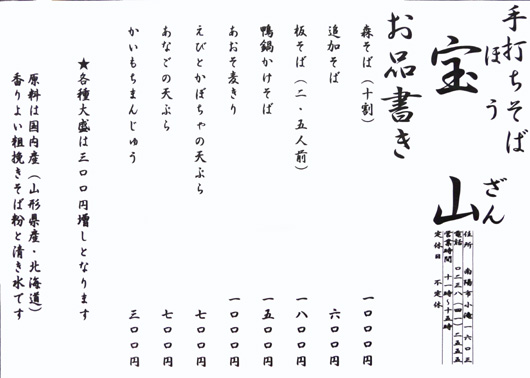 手打ちそば
宝山
ほうざん
住所 南陽市小滝一六〇三
電話 〇二三八(四一)二五五五
営業時間 十一時〜十五時
定休日 不定休
お品書き
森そば(十割) 一〇〇〇円
追加そば 六〇〇円
板そば(二・五人前) 一八〇〇円
鴨鍋かけそば 一五〇〇円
あおそ麦きり 一〇〇〇円
えびとかぼちゃの天ぷら 七〇〇円
あなごの天ぷら 七〇〇円
かいもちまんじゅう 三〇〇円
★各種大盛は三〇〇円増しとなります
原料は国内産(山形県産・北海道)
香りよい粗挽きそば粉と清き水です